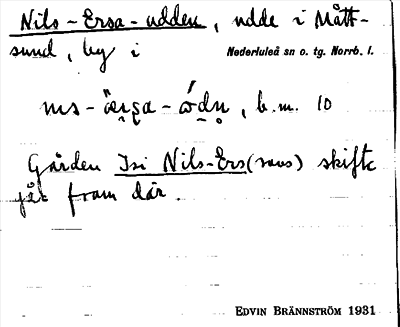 Nils-Ersa-udden, udde i Mått-
sund, by i Nederluleå sn o. tg. Norrb. l.
b.m. 10
Gården Isi Nils-Ers(sons) skifte
går fram där.
EDVIN BRÄNNSTRÖM 1931